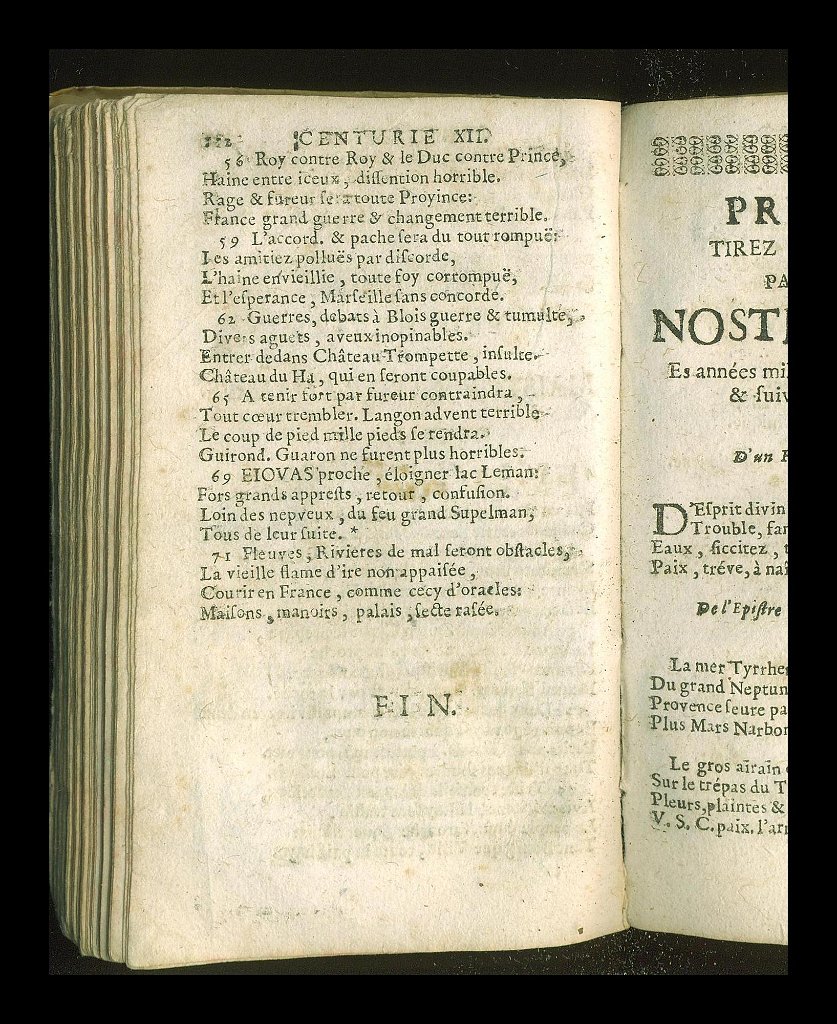 CENTURIE XII.
56 Roy contre Roy & le Duc contre Prince,
Haine entre iceux, diſſention horrible.
Rage & fureur ſera toute Province:
France grand guerre & changement terrible.
59 L'accord. & pache ſera du tout rompuë:
Les amitiez polluës par diſcorde,
L'haine envieillie, toute foy corrompuë,
Et l'eſperance, Marſeille ſans concorde.
62 Guerres, debats à Blois guerre & tumulte,
Divers aguets, aveux inopinables.
Entrer dedans Château Trompette, inſulte.
Château du Ha, qui en ſeront coupables.
65 A tenir fort par fureur contraindra,
Tout cœur trembler. Langon advent terrible
Le coup de pied mille pieds ſe rendra.
Guirond. Guaron ne furent plus horribles.
69 EIOVAS proche, éloigner lac Leman:
Fors grands appreſts, retour, confuſion.
Loin des nepveux, du feu grand Supelman,
Tous de leur ſuite. *
71 Fleuves, Rivieres de mal ſeront obſtacles,
La vieille flame d'ire non appaiſée,
Courir en France, comme cecy d'oracles:
Maiſons, manoirs, palais, ſecte raſée.
FIN.
PR
TIREZ
PA
NOST
Es années mi
& ſuiv
D'un
D'Eſprit divin
Trouble, fa
Eaux, ſiccitez,
Paix, tréve, à naî
De l'Epiſtre
La mer Tyrrhe
Du grand Neptun
Provence ſeure pa
Plus Mars Narbon
Le gros airain
Sur le trépas du T
Pleurs, plaintes &
V. S. C. paix. l'arr